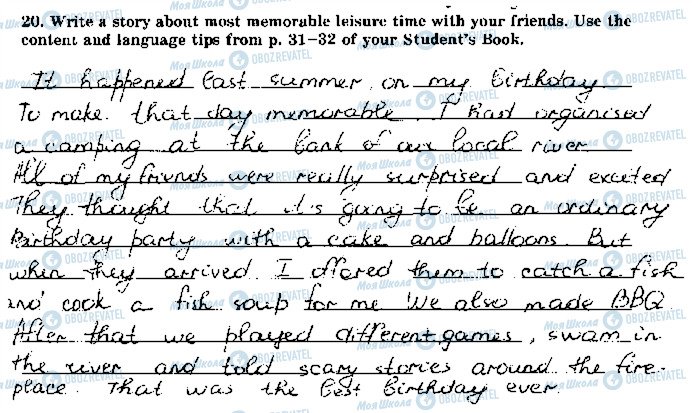 20. Write a story about most memorable leisure time with your friends. Use the
content and language tips from p. 31–32 of your Student's Book.
It happened last summer on my birthday
To make that day memorable I had organised
a camping at the bank of our local river
All of my friends were really surprised and excited
They thought that it's going to be an ordinary
Birthday party with a cake and balloons. But
when they arrived I offered them to catch a fish
and cook a fish soup for me We also made BBQ
After that we played different games, swam in
the river and told scary stories around the fire-
place. That was the best birthday ever.